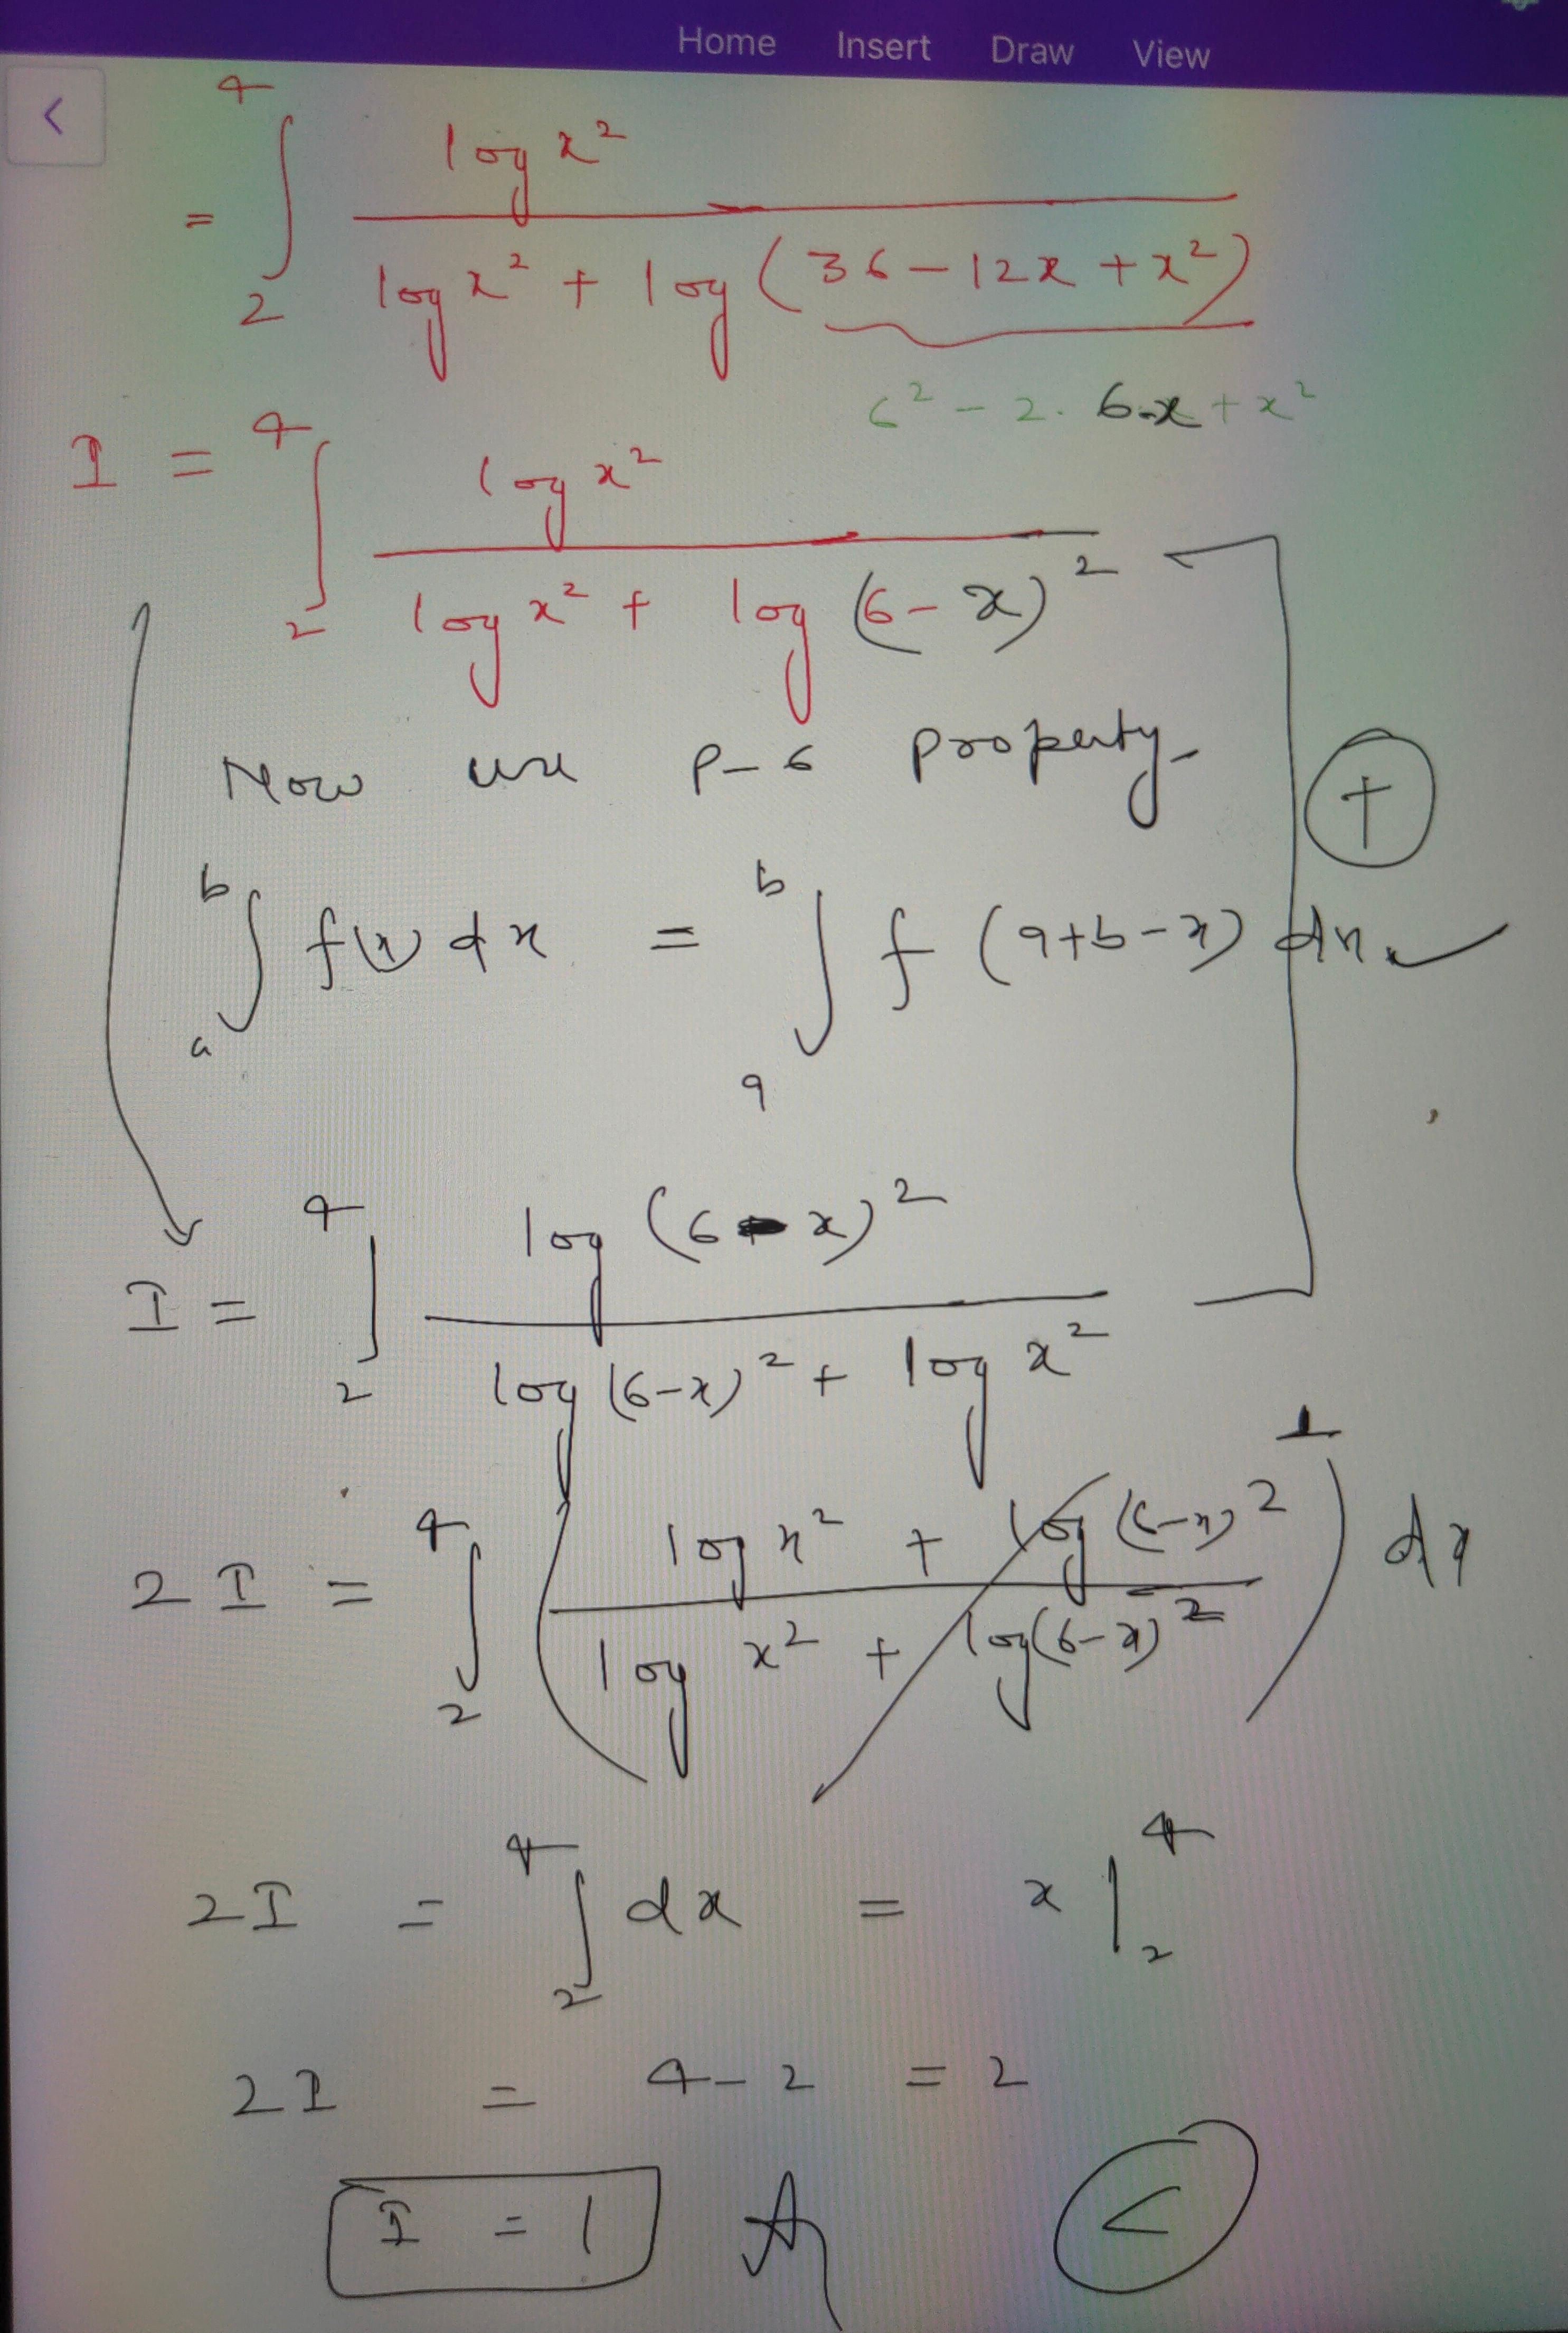 Home Insert Draw View
<
= ∫₂⁴ log x² / (log x² + log (36 – 12x + x²))
6² – 2. 6.x + x²
I = ∫₂⁴ log x² / (log x² + log (6 – x)²)
Now use P–6 property
+
ₐ∫ᵇ f(x) dx = ₐ∫ᵇ f (a+b–x) dx
I = ∫₂⁴ log (6 – x)² / (log (6–x)² + log x²)
1
2I = ∫₂⁴ ( (log x² + log (6–x)²) / (log x² + log(6–x)²) ) dx
2I = ∫₂⁴ dx = x |₂⁴
2I = 4 – 2 = 2
I = 1 C